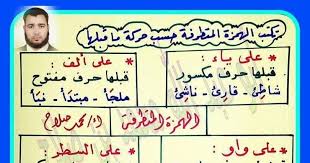 تكتب الهمزة المتطرفة حسب حركة ما قبلها
* على ألف :
قبلها حرف مفتوح
ملجأ - مبتدأ - نبأ
* على ياء :
قبلها حرف مكسور
شاطئ - قارئ - ناشئ
الهمزة المتطرفة
أ/محمد صلاح
* على واو :
* على السطر :